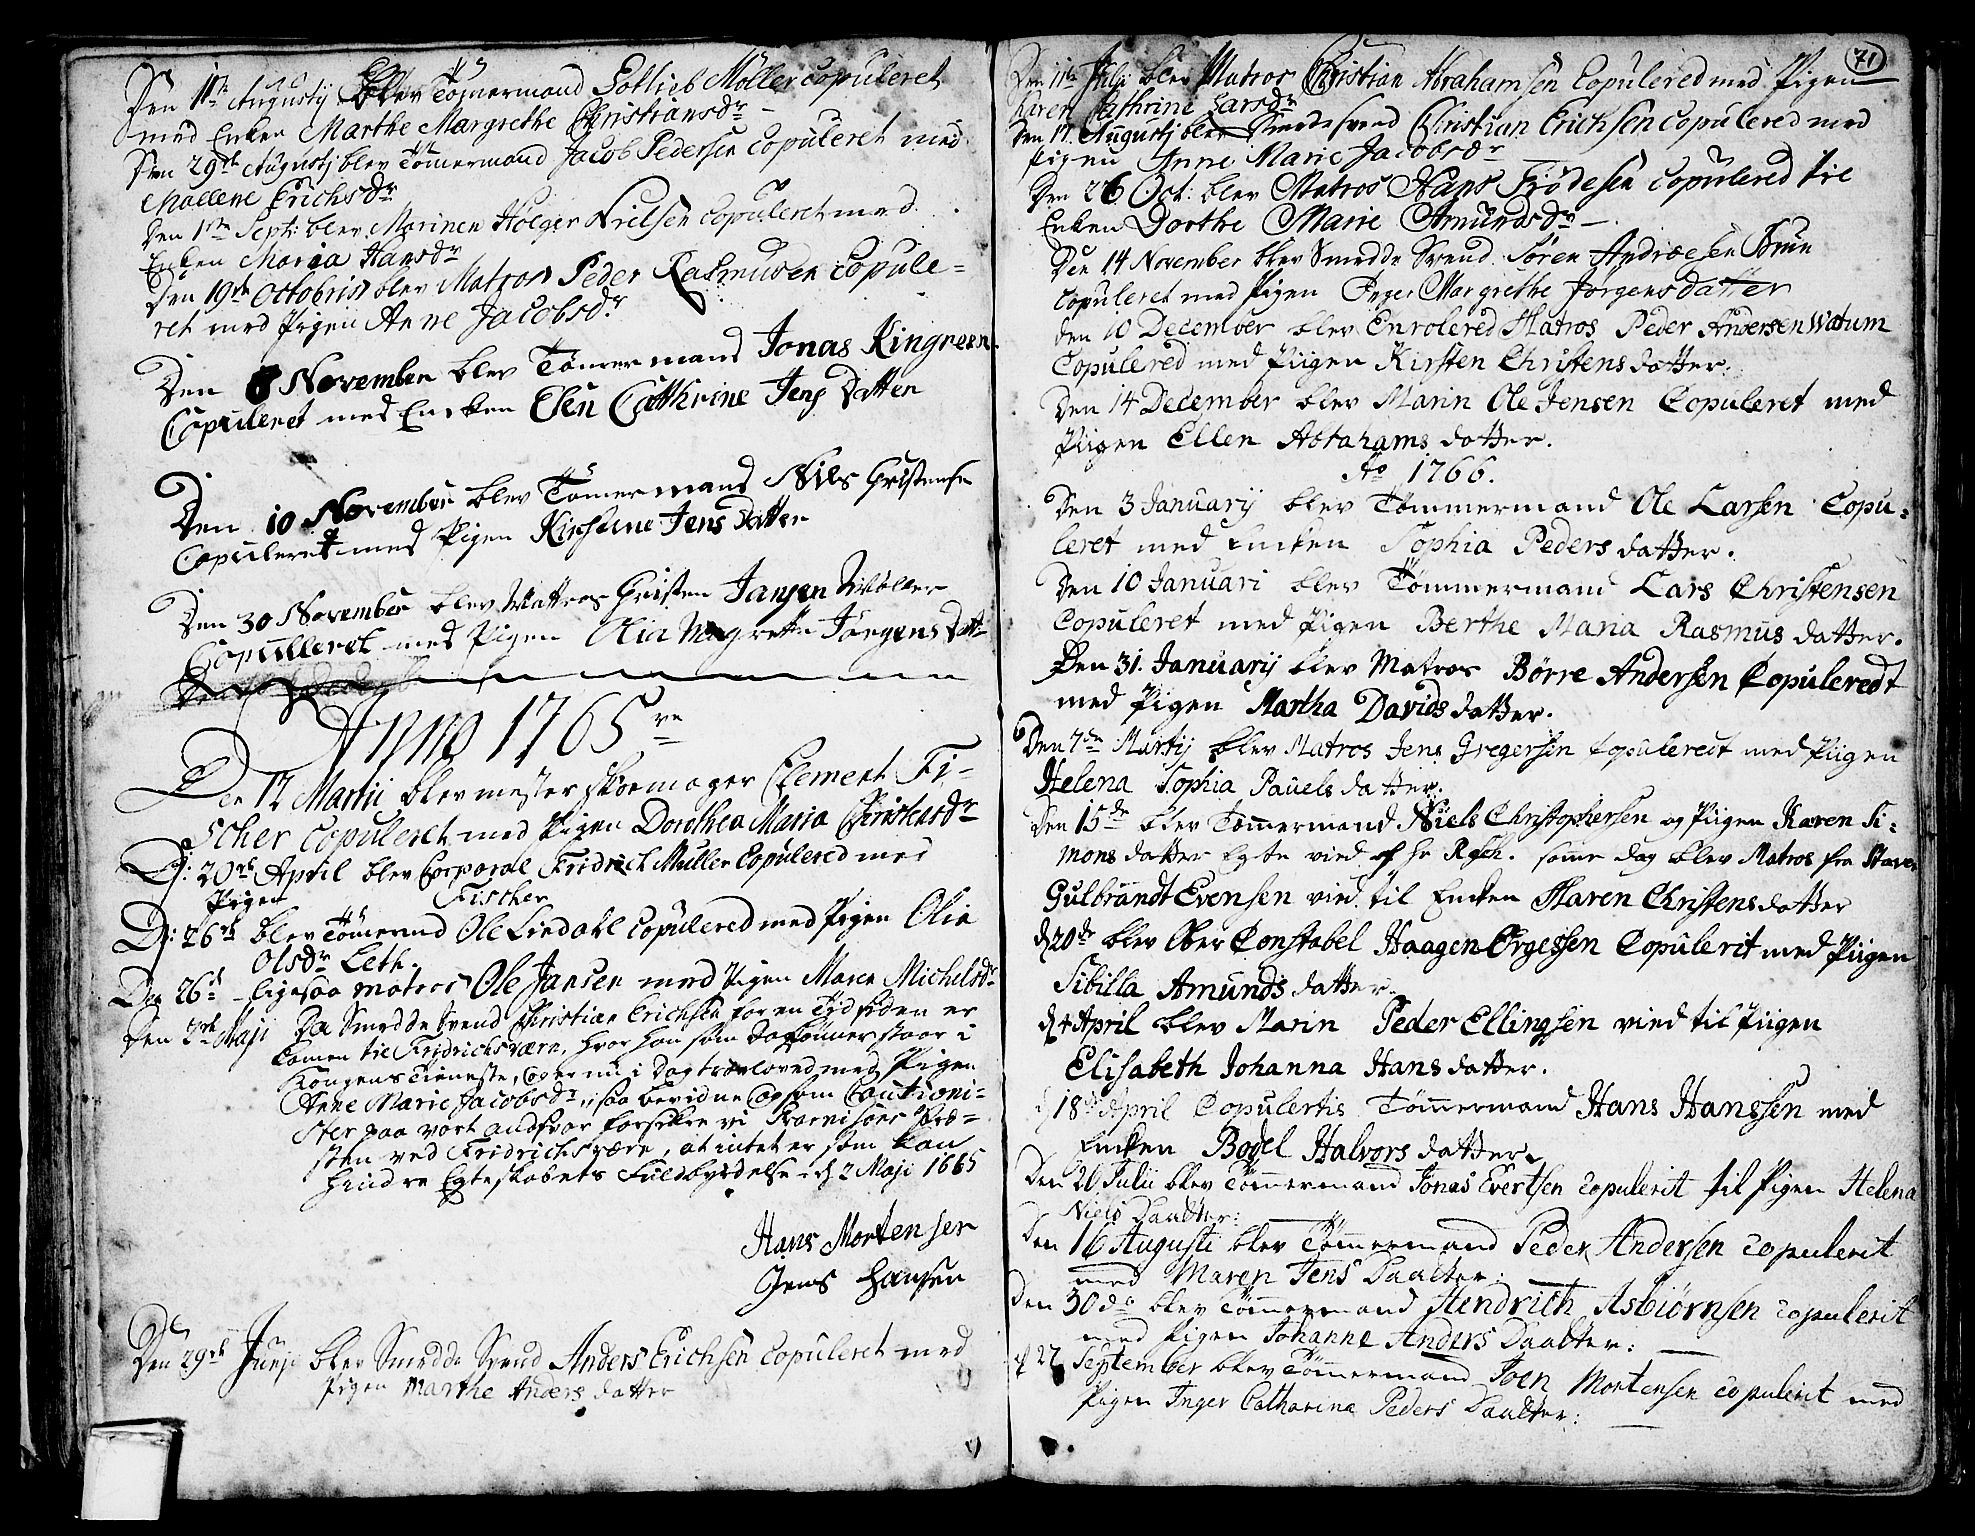 Den 11te Augustij blev Tömermand Gotlieb Möller copuleret
med Enken Marthe Margrethe Christiansdr
Den 29de Augustj blev Tömermand Jacob Pedersen copuleret med
Mallene Erichsdr
Den 1ste Sept: blev Marinen Holger Nielsen copuleret med
Enken Maria Hansdr
Den 19de Octobris blev Matros Peder Rasmusen Copule=
ret med Pigen Anne Jacobsdr
Den 8 November blev Tømermand Jonas Kingreen
Copuleret med Encken Elen Cathrine Jens Datter
Den 10 November blev Tømermand Nils Christense
Copuleret med Pigen Kirstine Jens Datter
Den 30 November blev Mattros Christen Jansen Møller
Copulleret med Pigen Olia Magrette Jørgens Datt
Anno 1765
Den 12 Martii blev mester Skoemager Clement Fi=
scher copuleret med Pigen Dorothea Maria Christensdr
D: 20de April blev Corporal Fridrich Muller Copulered med
Pigen Fischer
D: 26de blev Tömermd Ole Liedahl copulered med Pigen Olia
Olsdr Leth.
Den 26d ligesaa matros Ole Jansen med Pigen Maren Michelsdr
Den 3de Maji Da Smedde Svend Christian Erichsen for en Tyd siden er
komen til Fridrichsværn, hvor han som Dagkönner staar i
Kongens Tieneste, og er nu i Dag trovloved med Pigen
Anne Marie Jacobsdr, saa bevidne og som Cautioni=
ster paa vort andsvar forsikre vi Garnisons Præ=
sten ved Fridrichsværn, at intet er som kan
hindre Egteskabets Fuldbyrdelse. d 2 Maji 1665
Hans Mortensen
Jens Hansen
Den 29de Junji blev Smedde Svend Anders Erichsen copuleret med
Pigen Marthe Anders datter
71
Den 11te Julj blev Matros Christian Abrahamsen Copulered med Pigen
Karen Cathrine Larsdr
Den 17 Augustj blev Smedesvend Christian Erichsen copulered med
Pigen Anne Marie Jacobsdr
Den 26 Oct: blev Matros Hans Frödesen copulered til
Enken Dorthe Marie Amundsdr
Den 14 November blev Smedde Svend Sören Andreesen Bruun
copuleret med Pigen Inger Margrethe Jørgensdatter
den 10 December blev Enrolered Matros Peder Andersen Watum
Copulered med Piigen Kirsten Christens datter.
Den 14 December blev Marin Ole Jensen Copuleret med
Piigen Ellen Abrahams datter.
Ao 1766.
Den 3 Januarij blev Tømmermand Ole Larsen Copu=
leret med Encken Sophia Peders datter.
Den 10 Januari blev Tømmermand Lars Christensen
Copuleret med Pigen Berthe Maria Rasmus datter.
Den 31. Januarij blev Matros Børre Andersen Copuleredt
med Pigen Martha Davids datter.
Den 7de Martij blev Matros Jens Gregersen Copuleredt med Piigen
Helena Sophia Pauels datter.
Den 15de blev Tømmermand Niels Christophersen og Piigen Karen Si=
mons datter Egte vied af Hr Rsch. samme dag blev Matros fra Staver
Gulbrandt Evensen vied til Encken Maren Christens datter
d 20de blev Ober Constabel Haagen Ørgessen Copulerit med Piigen
Sibilla Amunds datter.
d 4 April blev Marin Peder Ellingsen vied til Piigen
Elisabeth Johanna Hans datter.
d 18de April Copulertis Tømmermand Hans Hanssen med
Encken Bodel Halvors datter.
Den 20 Julii blev Tømmermand Jonas Evertsen copulerit til Pigen Helena
Niels Daatter:
Den 16 Augusti blev Tømmermand Peder Andersen copulerit
med Maren Jens Daatter:
Den 30de blev Tømmermand Hendrich Asbiørnsen copulerit
med Pigen Johanne Anders Daatter:
d 27 September blev Tømmermand Joen Mortensen copulerit med
Pigen Inger Catharina Peders Daatter: